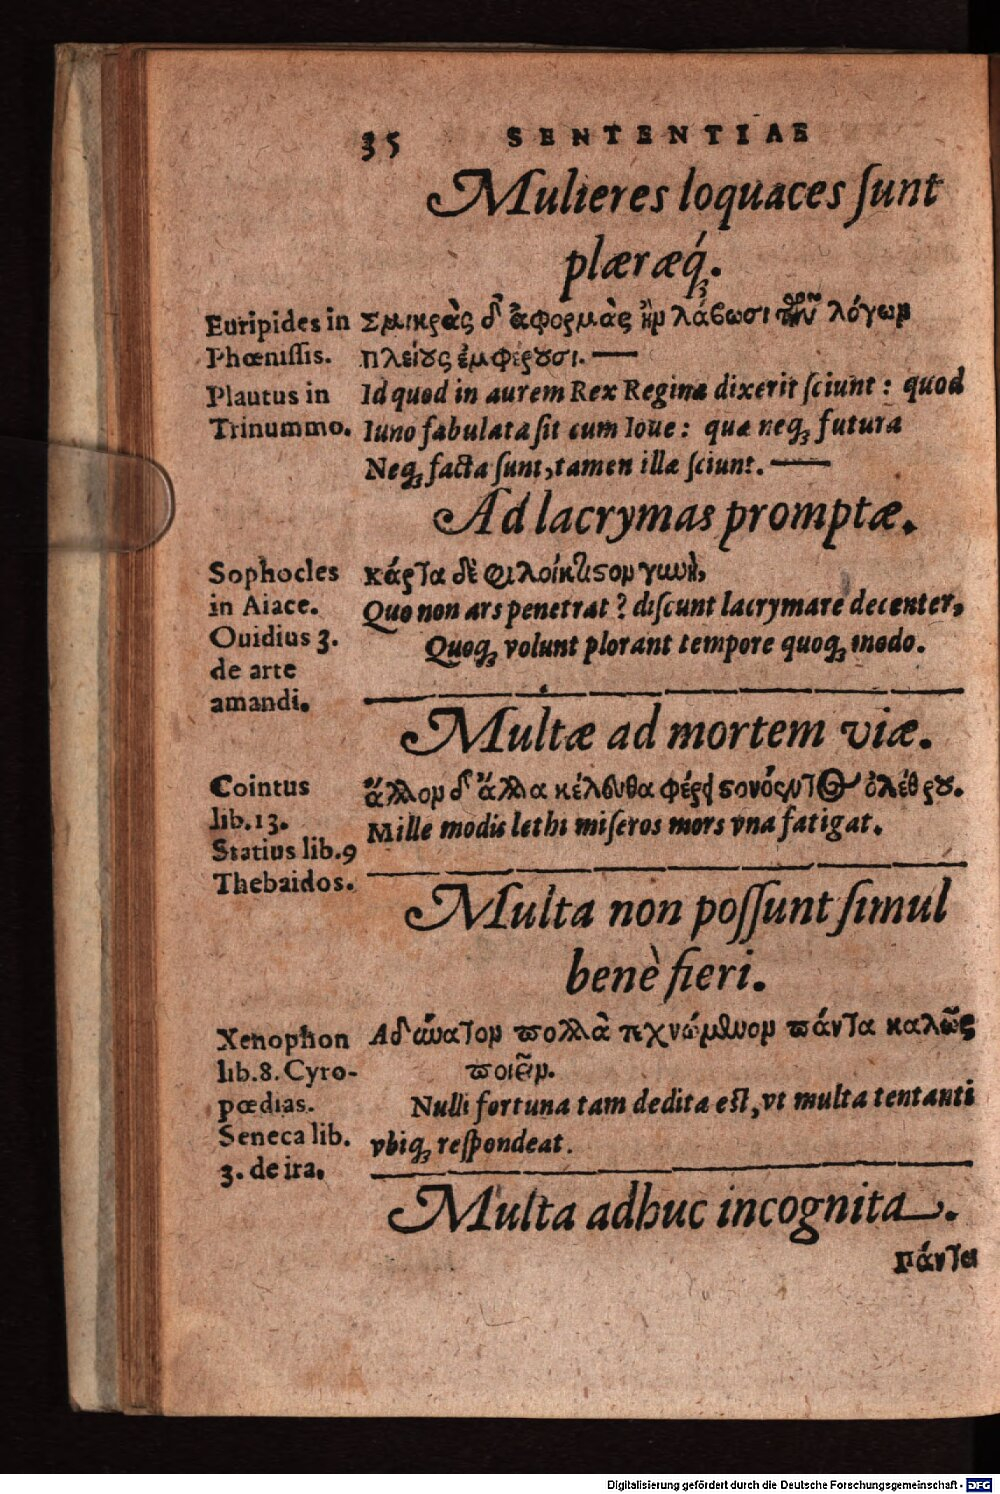 35 SENTENTIAE
Mulieres loquaces sunt
plæræq́;.
Euripides in
Phœnissis.
Σμικρὰς δ᾽ ἀφορμὰς ἢν λάβωσι τῶν λόγων
Πλείους ἐμφέρουσι. —
Plautus in
Trinummo.
Id quod in aurem Rex Reginæ dixerit sciunt: quod
Iuno fabulata sit cum Ioue: quæ neq; futura
Neq; facta sunt, tamen illæ sciunt. —
Ad lacrymas promptæ.
Sophocles
in Aiace.
κάρτα δὲ φιλοίκτιστον γυνὴ,
Ouidius 3.
de arte
amandi.
Quo non ars penetrat? discunt lacrymare decenter,
Quoq; volunt plorant tempore quoq; modo.
Multæ ad mortem viæ.
Cointus
lib. 13.
ἄλλον δ᾽ ἄλλα κέλευθα φέρει στονόεντος ὀλέθρου.
Statius lib. 9
Thebaidos.
Mille modis lethi miseros mors vna fatigat.
Multa non possunt simul
benè fieri.
Xenophon
lib. 8. Cyro-
pœdias.
Αδύνατον πολλὰ τεχνώμενον πάντα καλῶς
ποιεῖν.
Seneca lib.
3. de ira.
Nulli fortuna tam dedita est, vt multa tentanti
vbiq; respondeat.
Multa adhuc incognita.
Πάντα
Digitalisierung gefördert durch die Deutsche Forschungsgemeinschaft - DFG